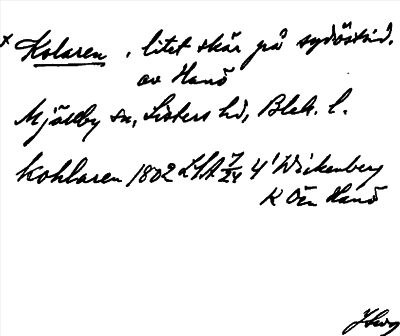 × Kolaren, litet skär på sydöstsid.
av Hanö
Mjällby sn, Listers hd, Blek. l.
Kohlaren 1802 LSA 7/24 4' Wickenberg
K Ön Hanö